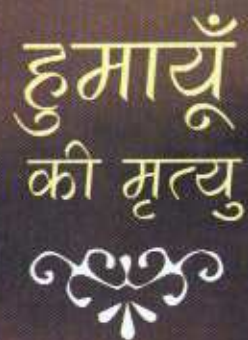 हुमायूँ
की मृत्यु